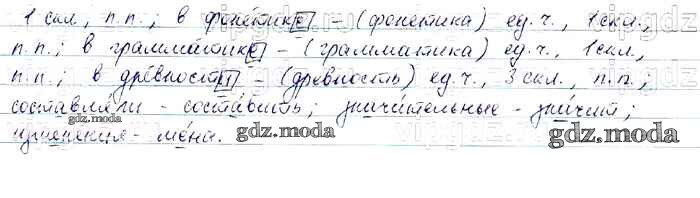 1 скл., п.п.; в фонетике – (фонетика) ед.ч., 1 скл.,
п.п.; в грамматике – (грамматика) ед.ч., 1 скл.,
п.п.; в древности – (древность) ед.ч., 3 скл., п.п.;
составляли – составить; значительные – значит;
изменения – мена.
gdz.moda
gdz.moda
gdz.moda